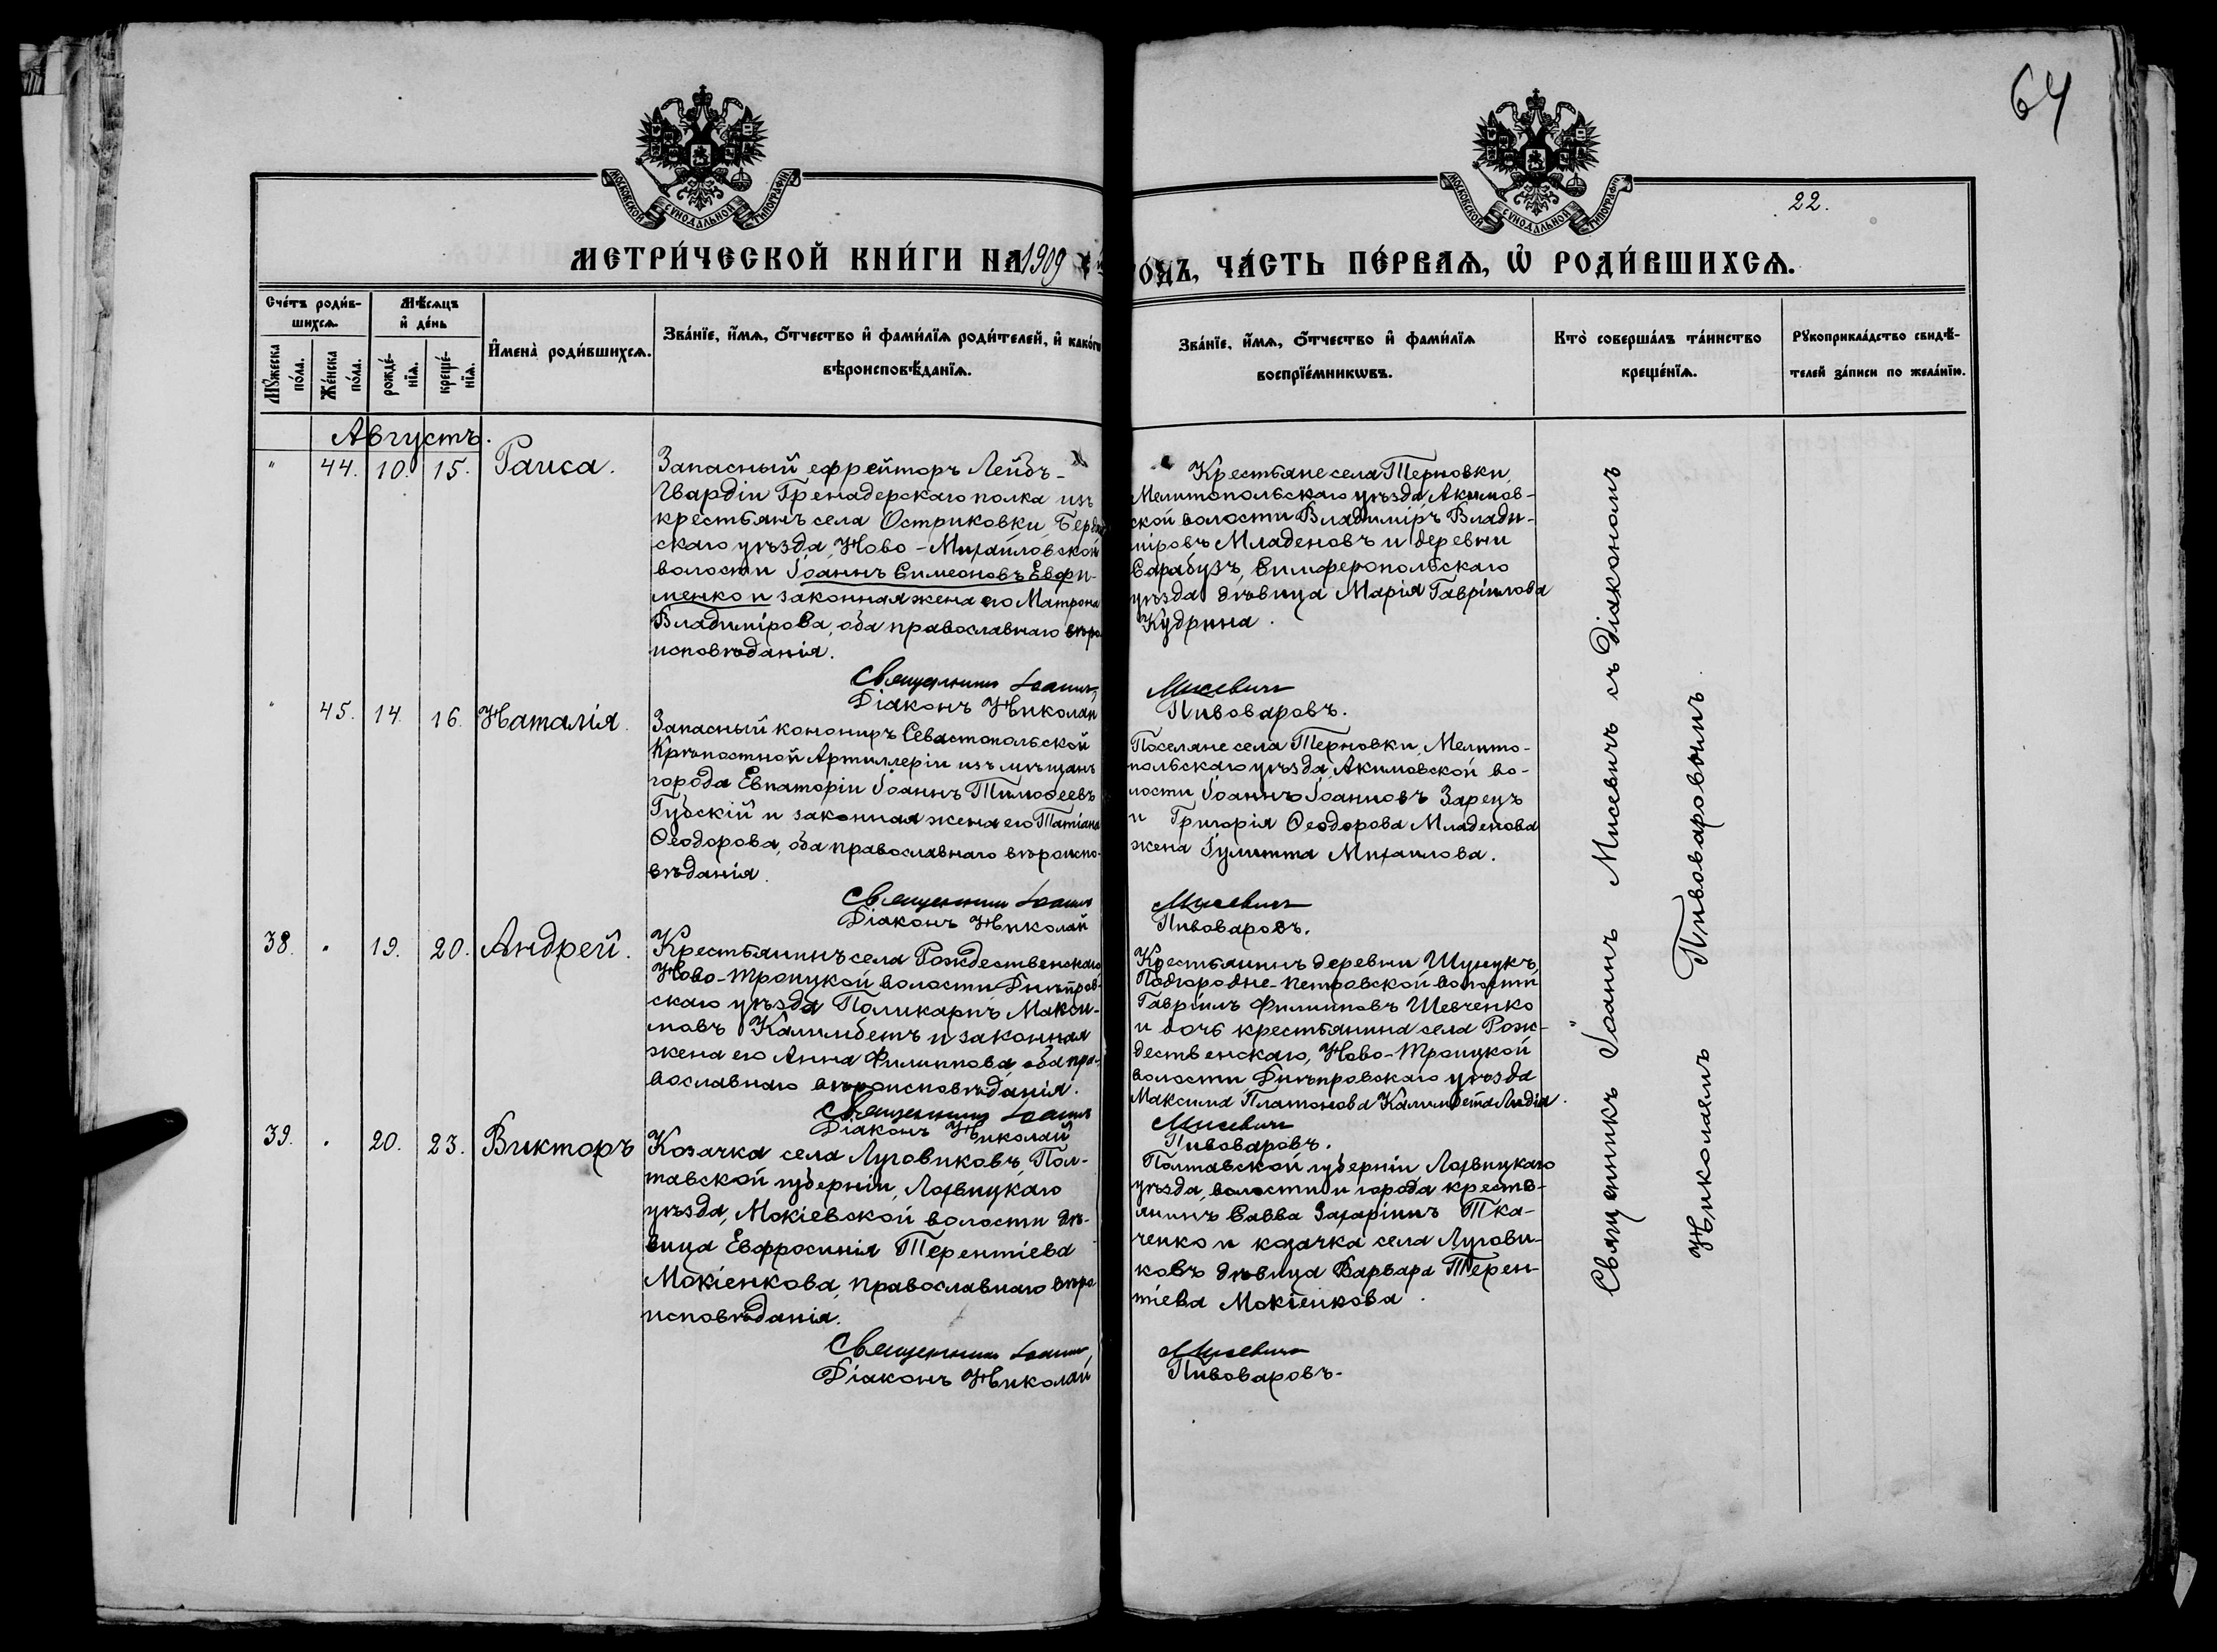 64
22.
МОСКОВСКОЙ СѴНОДАЛЬНОЙ ТИПОГРАФІИ
МОСКОВСКОЙ СѴНОДАЛЬНОЙ ТИПОГРАФІИ
МЕТРИ́ЧЕСКОЙ КНИ́ГИ НА 1909
ГО́ДЪ, ЧА́СТЬ ПЕ́РВАѦ, Ѽ РОДИ́ВШИХСѦ.
Сче́тъ роди́в-
шихсѧ.
Мѣ́сѧцъ
и҆ де́нь
Мꙋ́жеска
по́ла.
Же́нска
по́ла.
рожде́-
нїѧ.
креще́-
нїѧ.
И҆мена̀ роди́вшихсѧ.
Зва́нїе, и҆́мѧ, ѻ҆́тчество и҆ фами́лїѧ роди́телей, и҆ како́гѡ
вѣроисповѣ́данїѧ.
Зва́нїе, и҆́мѧ, ѻ҆́тчество и҆ фами́лїѧ
воспрїе́мникѡвъ.
Кто̀ соверша́лъ та́инство
креще́нїѧ.
Рꙋкоприкла́дство свидѣ́-
телей за́писи по жела́нїю.
Августъ.
" 44. 10. 15. Раиса.
Запасный ефрейторъ Лейбъ-
Гвардіи Гренадерскаго полка изъ
крестьянъ села Остриковки, Бердян
скаго уѣзда, Ново-Михайловской
волости Іоаннъ Симеоновъ Евфи-
менко и законная жена его Матрона
Владимірова, оба православнаго вѣро
исповѣданія.
Священникъ Іоаннъ
Діаконъ Николай
Крестьяне села Терновки,
Мелитопольскаго уѣзда, Акимов-
ской волости Владиміръ Влади-
міровъ Младеновъ и деревни
Сарабузъ, Симферопольскаго
уѣзда дѣвица Марія Гавріилова
Кудрина.
Мисевичъ
Пивоваровъ.
" 45. 14. 16. Наталія.
Запасный канониръ Севастопольской
Крѣпостной Артиллеріи изъ мѣщанъ
города Евпаторіи Іоаннъ Тимоѳеевъ
Губскій и законная жена его Татіана
Ѳеодорова, оба православнаго вѣроиспо-
вѣданія.
Священникъ Іоаннъ
Діаконъ Николай
Поселяне села Терновки, Мелито-
польскаго уѣзда, Акимовской во-
лости Іоаннъ Іоанновъ Зарецъ
и Григорія Ѳеодорова Младенова
жена Іулитта Михаилова.
Мисевичъ
Пивоваровъ.
38. " 19. 20. Андрей.
Крестьянинъ села Рождественскаго
Ново-Троицкой волости Днѣпров-
скаго уѣзда Поликарпъ Макси-
мовъ Калимбетъ и законная
жена его Анна Филиппова, оба пра-
вославнаго вѣроисповѣданія.
Священникъ Іоаннъ
Діаконъ Николай
Крестьянинъ деревни Шунукъ,
Подгородне-Петровской волости
Гавріилъ Филипповъ Шевченко
и дочь крестьянина села Рож-
дественскаго, Ново-Троицкой
волости Днѣпровскаго уѣзда
Максима Платонова Калимбета Лидія.
Мисевичъ
Пивоваровъ.
39. " 20. 23. Викторъ
Козачка села Луговиковъ, Пол-
тавской губерніи, Лохвицкаго
уѣзда, Мокіевской волости дѣ-
вица Евфросинія Терентіева
Мокіенкова, православнаго вѣро
исповѣданія.
Священникъ Іоаннъ
Діаконъ Николай
Полтавской губерніи Лохвицкаго
уѣзда, волости и города кресть-
янинъ Савва Захаріинъ Тка-
ченко и козачка села Лугови-
ковъ дѣвица Варвара Терен-
тіева Мокіенкова.
Мисевичъ
Пивоваровъ.
Священникъ Іоаннъ Мисевичъ съ діакономъ
Николаемъ Пивоваровымъ.